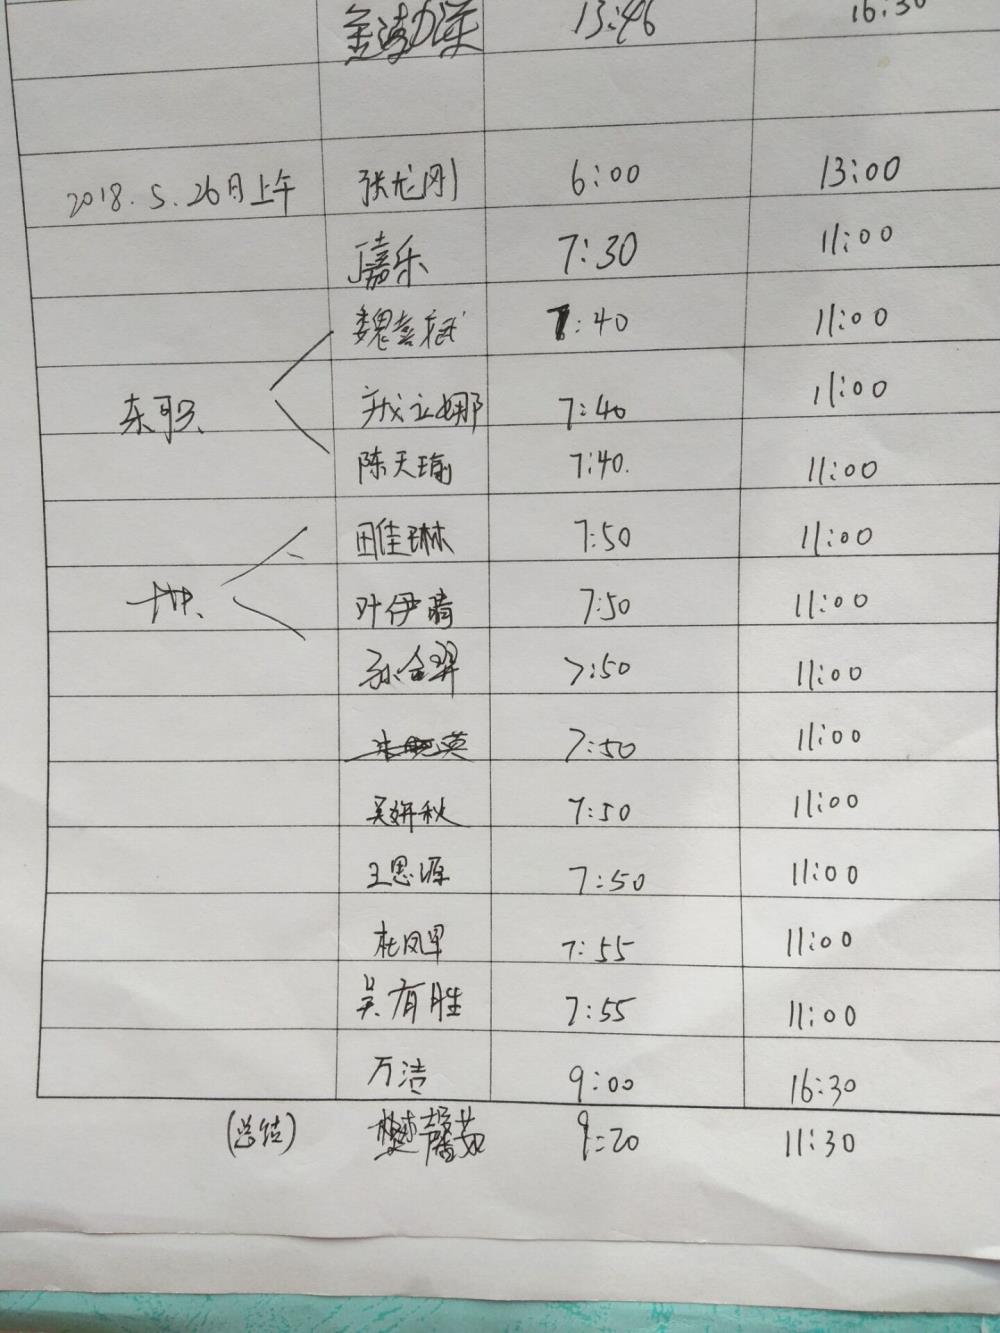 13:46 16:30
2018.5.26月上午 张龙刚 6:00 13:00
嘉乐 7:30 11:00
魏喜斌 7:40 11:00
东职 成立娜 7:40 11:00
陈天瑜 7:40. 11:00
田佳琳 7:50 11:00
叶伊晴 7:50 11:00
孙 7:50 11:00
7:50 11:00
吴妍秋 7:50 11:00
王思源 7:50 11:00
杜凤 7:55 11:00
吴有胜 7:55 11:00
万洁 9:00 16:30
(总结) 樊馨茹 9:20 11:30